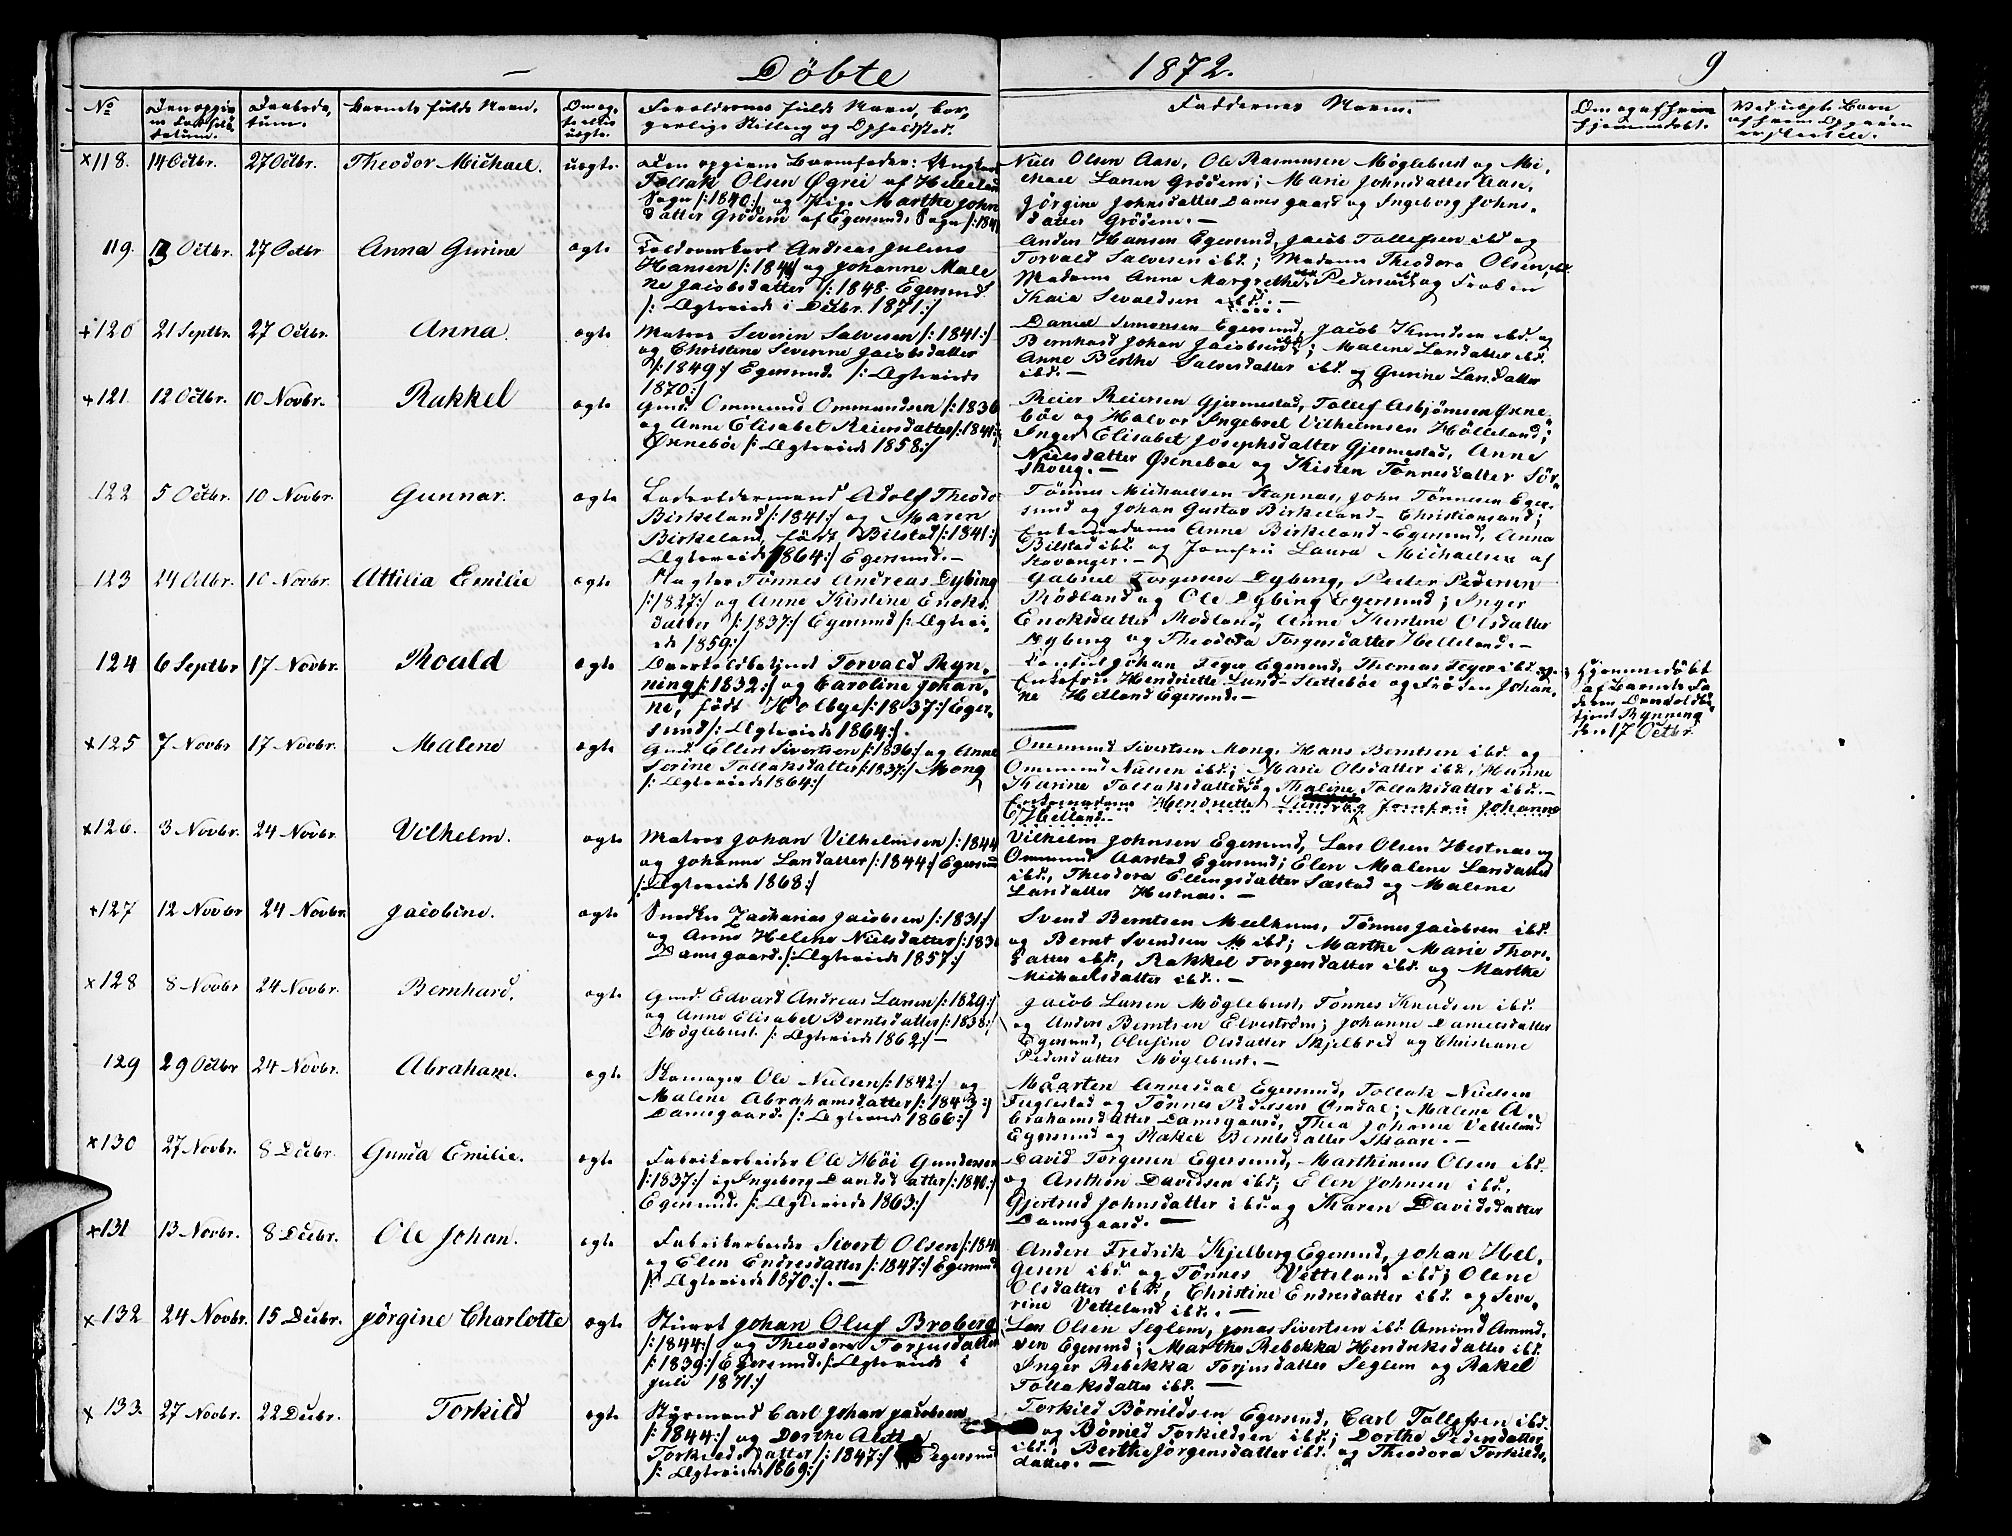 Döbte 1872. 9
No Barnets fulde Navn. Faddernes Navn.
×118. 14 Octbr. 27 Octbr. Theodor Michael. uægte.
Tollak Olsen Øgrei af Helleland
Sogn /:1840:/ og Pige Marthe John
datter Grödem af Egersunds Sogn /:184
Niels Olsen Aase, Ole Rasmussen Möglebust og Mi-
chael Larsen Grödem; Marie Johnsdatter Aase,
Jörgine Johnsdatter Damsgaard og Ingeborg Johns-
datter Grödem.—
119. 13 Octbr. 27 Octbr Anna Gurine ægte
Andreas Julius
Hansen /:1844 og Johanne Male
ne Jacobsdatter /:1848 Egersund.
/: Ægteviede i Decbr. 1871:/
Anders Hansen Egersund, Jacob Tollefsen ibd og
Torvald Salvesen ibd.; Madame Theodora Olsen, ibd.
Madame Anne Margrethe Pedersen og Frøken
Thaia Sevaldsen ibd.—
+120 21 Septbr. 27 Octbr. Anna. ægte
Matros Severin Salvesen /:1841:/
og Christine Severine Jacobsdatter
/:1849:/ Egersund. /: Ægteviede
1870:/
Daniel Simonsen Egersund, Jacob Knudsen ibd. og
Bernhard Johan Jacobsen ibd.; Malene Larsdatter ibd.
Anne Berthe Salvesdatter ibd. og Gurine Larsdatter
ibd.—
+121. 12 Octbr. 10 Novbr. Rakkel ægte
Gmd. Ommund Ommundsen /:1836
og Anne Elisabet Reiersdatter /:1841:/
Øxnebøe /: Ægteviede 1858:/
Reier Reiersen Gjermestad, Tollef Asbjørnsen Øxne-
bøe og Halvor Ingebret Vilhelmsen Hölleland;
Inger Elisabet Josephsdatter Gjermestad, Anne
Nielsdatter Øxneboe og Kisten Tönnesdatter Sör-
skoug.—
122 5 Octbr. 10 Novbr. Gunnar. ægte
Adolf Theodor
Birkeland /:1841:/ og Maren
Birkeland, født Bilstad /:1841:/
Ægteviede 1864:/ Egersund.—
Tönnes Michaelsen Kapnas, John Tönnesen Eger-
sund og Johan Gustav Birkeland-Christiansand;
Enkemadame Anne Birkeland-Egersund, Anna
Bilstad ibd. og Jomfru Laura Michaelsen af
Stavanger.—
123 24 Octbr. 10 Novbr. Attilia Emilie ægte
Slagter Tönnes Andreas Dybing
/:1827:/ og Anne Kirstine Enoks-
datter /:1837:/ Egersund /: Ægtevi-
ede 1859:/
Gabriel Torgersen Dybing, Peder Pedersen
Rödland og Ole Dybing Egersund; Inger
Enoksdatter Rodland, Anne Kerstine Olsdatter
Dybing og Theodora Torgersdatter Helleland.—
124 6 Septbr 17 Novbr. Thoald ægte
Overtoldbetjent Torvald Ryn-
ning /:1832:/ og Caroline Johan-
ne, født Holbye /:1837:/ Eger-
sund /: Ægteviede 1864:/.
Johan Feyer Egersund, Thomas Feyer ibd. og
Enkefru Henriette Lund-Slettebøe og Frøken Johan-
ne Hetland Egersund.—
Hjemmedøbt
af Barnets Fa-
deren Overtoldbe-
tjent Rynning
den 17 Octbr.
×125 7 Novbr 17 Novbr. Malene ægte
Gmd. Ellert Sivertsen /:1836:/ og Anne
Serine Tollaksdatter /:1837:/ Mong
/: Ægteviede 1864:/
Ommund Sivertsen Mong, Hans Berntsen ibd. og
Ommund Nielsen ibd.; Marie Olsdatter ibd., Hanne
Karine Tollaksdatter ibd. og Thaline Tollaksdatter ibd.—
Enkemadame Henriette Lund og Jomfru Johanne
Hetland
×126. 3 Novbr. 24 Novbr. Vilhelm. ægte
Matros Johan Vilhelmsen /:1844
og Johanne Larsdatter /:1844:/ Egersund
/: Ægteviede 1868:/
Vilhelm Johnsen Egersund, Lars Olsen Hestnas og
Ommund Aarstad Egersund; Elen Malene Larsdatter
ibd., Theodora Ellingsdatter Sæstad og Malene
Larsdatter Hestnas.—
+127 12 Novbr 24 Novbr. Jacobine. ægte
Snedker Zacharias Jacobsen /:1831:/
og Anne Helene Nielsdatter /:183
Damsgaard. /: Ægteviede 1857:/
Svend Berntsen Meelhuus, Tönnes Jacobsen ibd.
og Bernt Svendsen M ibd; Marthe Marie Thors-
datter ibd., Rakkel Torgersdatter ibd. og Marthe
Michaelsdatter ibd.—
×128 8 Novbr 24 Novbr. Bernhard. ægte
Gmd. Edvard Andreas Larsen /:1829:/
og Anne Elisabet Berntsdatter /:1838:/
Möglebust. /: Ægteviede 1862:/—
Jacob Larsen Möglebust, Tönnes Knudsen ibd.
og Anders Berntsen Elveström; Johanne Danielsdatter
Egersund, Olufine Olsdatter Skjelbred og Christiane
Pedersdatter Möglebust.—
129 29 Octbr 24 Novbr. Abraham. ægte
Skomager Ole Nielsen /:1842:/ og
Malene Abrahamsdatter /:1843:/
Damsgaard. /: Ægteviede 1866:/
Maarten Annesdal Egersund, Tollak Nielsen
Fuglestad og Tönnes Pedersen Omdal; Malene A-
brahamsdatter Damsgaard, Thea Johanne Vetteland
Egersund og Rakel Berntsdatter Skaare.—
×130 27 Novbr. 8 Decbr. Gunda Emilie. ægte
Fabrikarbeider Ole Höi Gundersen
/:1837:/ og Ingeborg Davidsdatter /:1840:/
Egersund. /: Ægteviede 1863:/
David Torgersen Egersund, Marthinus Olsen ibd.
og Anthon Davidsen ibd; Elen Johnsen ibd.,
Gjertrud Johnsdatter ibd. og Karen Davidsdatter
Damsgaard.—
×131 13 Novbr. 8 Decbr. Ole Johan. ægte
Fabrikarbeider Sivert Olsen /:184
og Elen Endresdatter /:1847:/ Egersund
/: Ægteviede 1870:/.—
Anders Fredrik Kjelberg Egersund, Johan Hel-
gesen ibd. og Tönnes Vetteland ibd; Olene
Olsdatter ibd., Christine Endresdatter ibd. og Seve-
rine Vetteland ibd.—
×132 24 Novbr. 15 Decbr. Jörgine Charlotte ægte
Stuert Johan Oluf Broberg
/:1844:/ og Theodora Torjusdatter
/:1839:/ Egersund. /: Ægteviede i
Juli 1871:/
Lars Olsen Seglem, Jonas Sivertsen ibd. Amund Amund-
sen Egersund; Marthe Rebekka Hendriksdatter ibd.
Inger Rebekka Torjusdatter Seglem og Rakel
Tollaksdatter ibd.—
× 133. 27 Novbr. 22 Decbr. Torkild ægte
Styrmand Carl Johan Jacobsen
/:1844:/ og Dorthe Aletta
Torkildsdatter /:1847:/ Egersund
/: Ægteviede 1869:/
Torkild Börrildsen Egersund, Carl Tollefsen ibd.
og Börrild Torkildsen ibd.; Dorthe Pedersdatter
ibd., Berthe Jörgensdatter ibd. og Theodora Torkilds-
datter.—